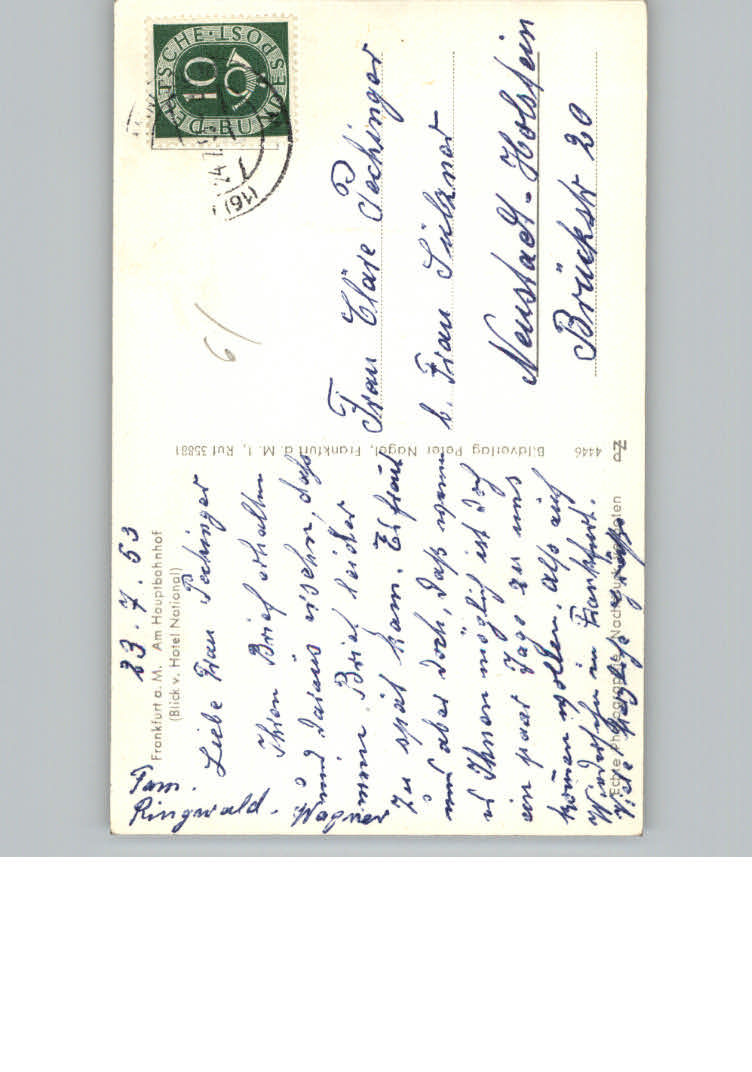 23.7.53
Frankfurt a. M. Am Hauptbahnhof
(Blick v. Hotel National)
Liebe Frau Pechinger
Ihren Brief erhalten
und daraus ersehn, daß
mein Brief leider
zu spät kam. Es freut
uns aber doch, daß wenn
es Ihnen möglich ist doch
ein paar Tage zu uns
kommen wollen. Also auf
Wiedersehn in Frankfurt.
Viele herzliche Grüße
Fam.
Ringwald - Wagner
Echte Photographie
4446 Bildverlag Peter Nagel, Frankfurt a. M. 1, Ruf 35881
DEUTSCHE·POST
BUNDES
10
(16)
24.7.
61
Frau Cläre Pechinger
b. Frau Sülzner
Neustadt-Holstein
Brückstr 20